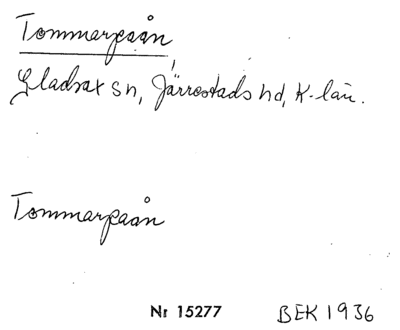 Tommarpaån,
Gladsax sn, Järrestads hd, K-län.
Tommarpaån
Nr 15277 BEK 1936